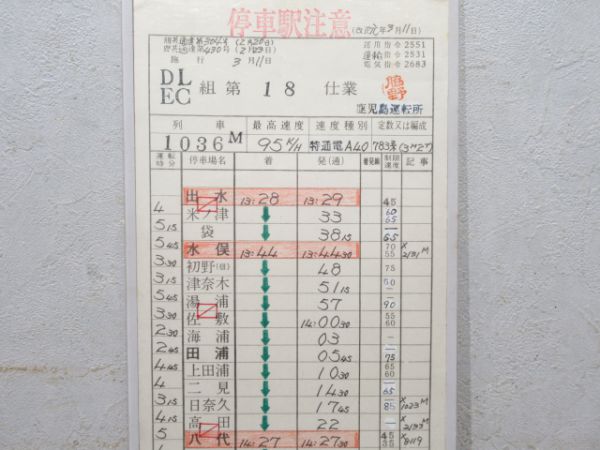 停車駅注意 (改 元年3月11日)
達第304号 (2月20日) 運用指令 2551
達第430号 (2月23日) 運輸指令 2531
施行 3月11日 電気指令 2683
DL
EC 組第 18 仕業
鹿児島運転所
列車 最高速度 速度種別 定数又は編成
1036M 95K/H 特通電A40 783系(3M2T)
運転時分 停車場名 着 発(通) 着発線 制限速度 記事
出水 13:28 13:29 45
4 米ノ津 ↓ 33 60 65
5 15 袋 ↓ 38 15 — 65
5 45 水俣 13:44 13:44 30 70 55 × 2131M
3 30 初野(信) ↓ 48 75
3 15 津奈木 ↓ 51 15 50 —
5 45 湯浦 ↓ 57 — 90
3 30 佐敷 ↓ 14:00 30 55 60
2 30 海浦 ↓ 03 —
2 45 田浦 ↓ 05 45 — 75
4 45 上田浦 ↓ 10 30 65 60
4 二見 ↓ 14 30 — 65
3 15 日奈久 ↓ 17 45 — 85 × 1023M
4 15 高田 ↓ 22 — × 2133M
5 八代 14:27 14:27 30 45 35 × 8119